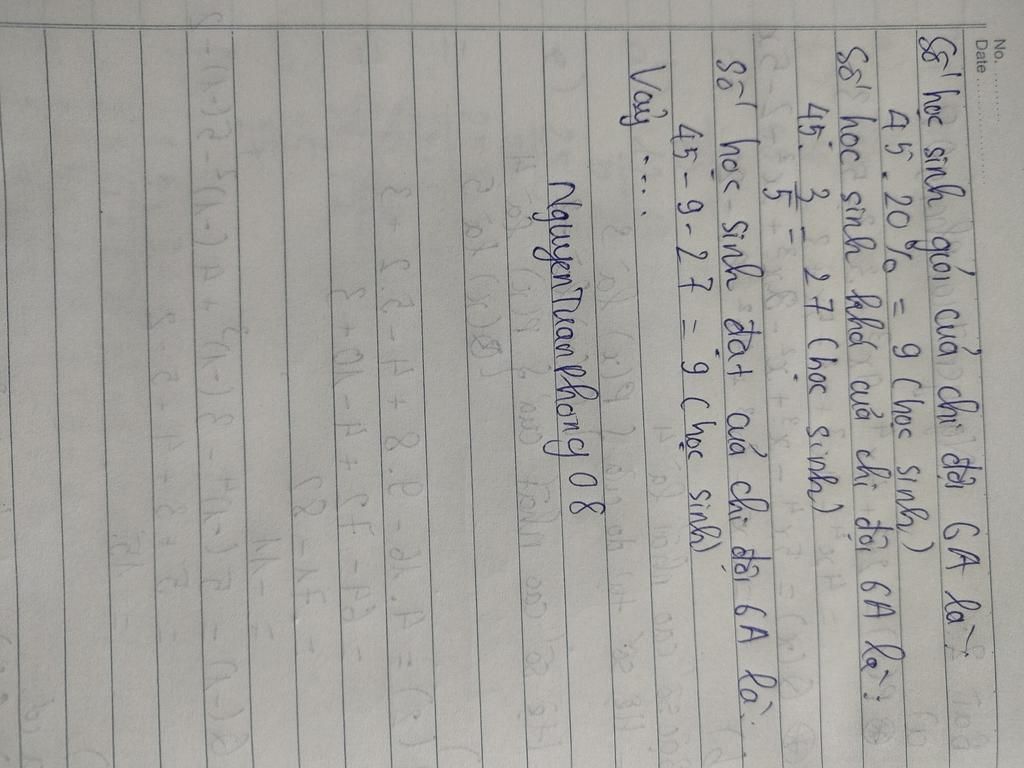 No. ............
Date ............
Số học sinh giỏi của chi đội 6A là:
45.20% = 9 (học sinh)
Số học sinh khá của chi đội 6A là:
45. 3/5 = 27 (học sinh)
Số học sinh đạt của chi đội 6A là:
45-9-27 = 9 (học sinh)
Vậy ....
NguyenTuanPhong08